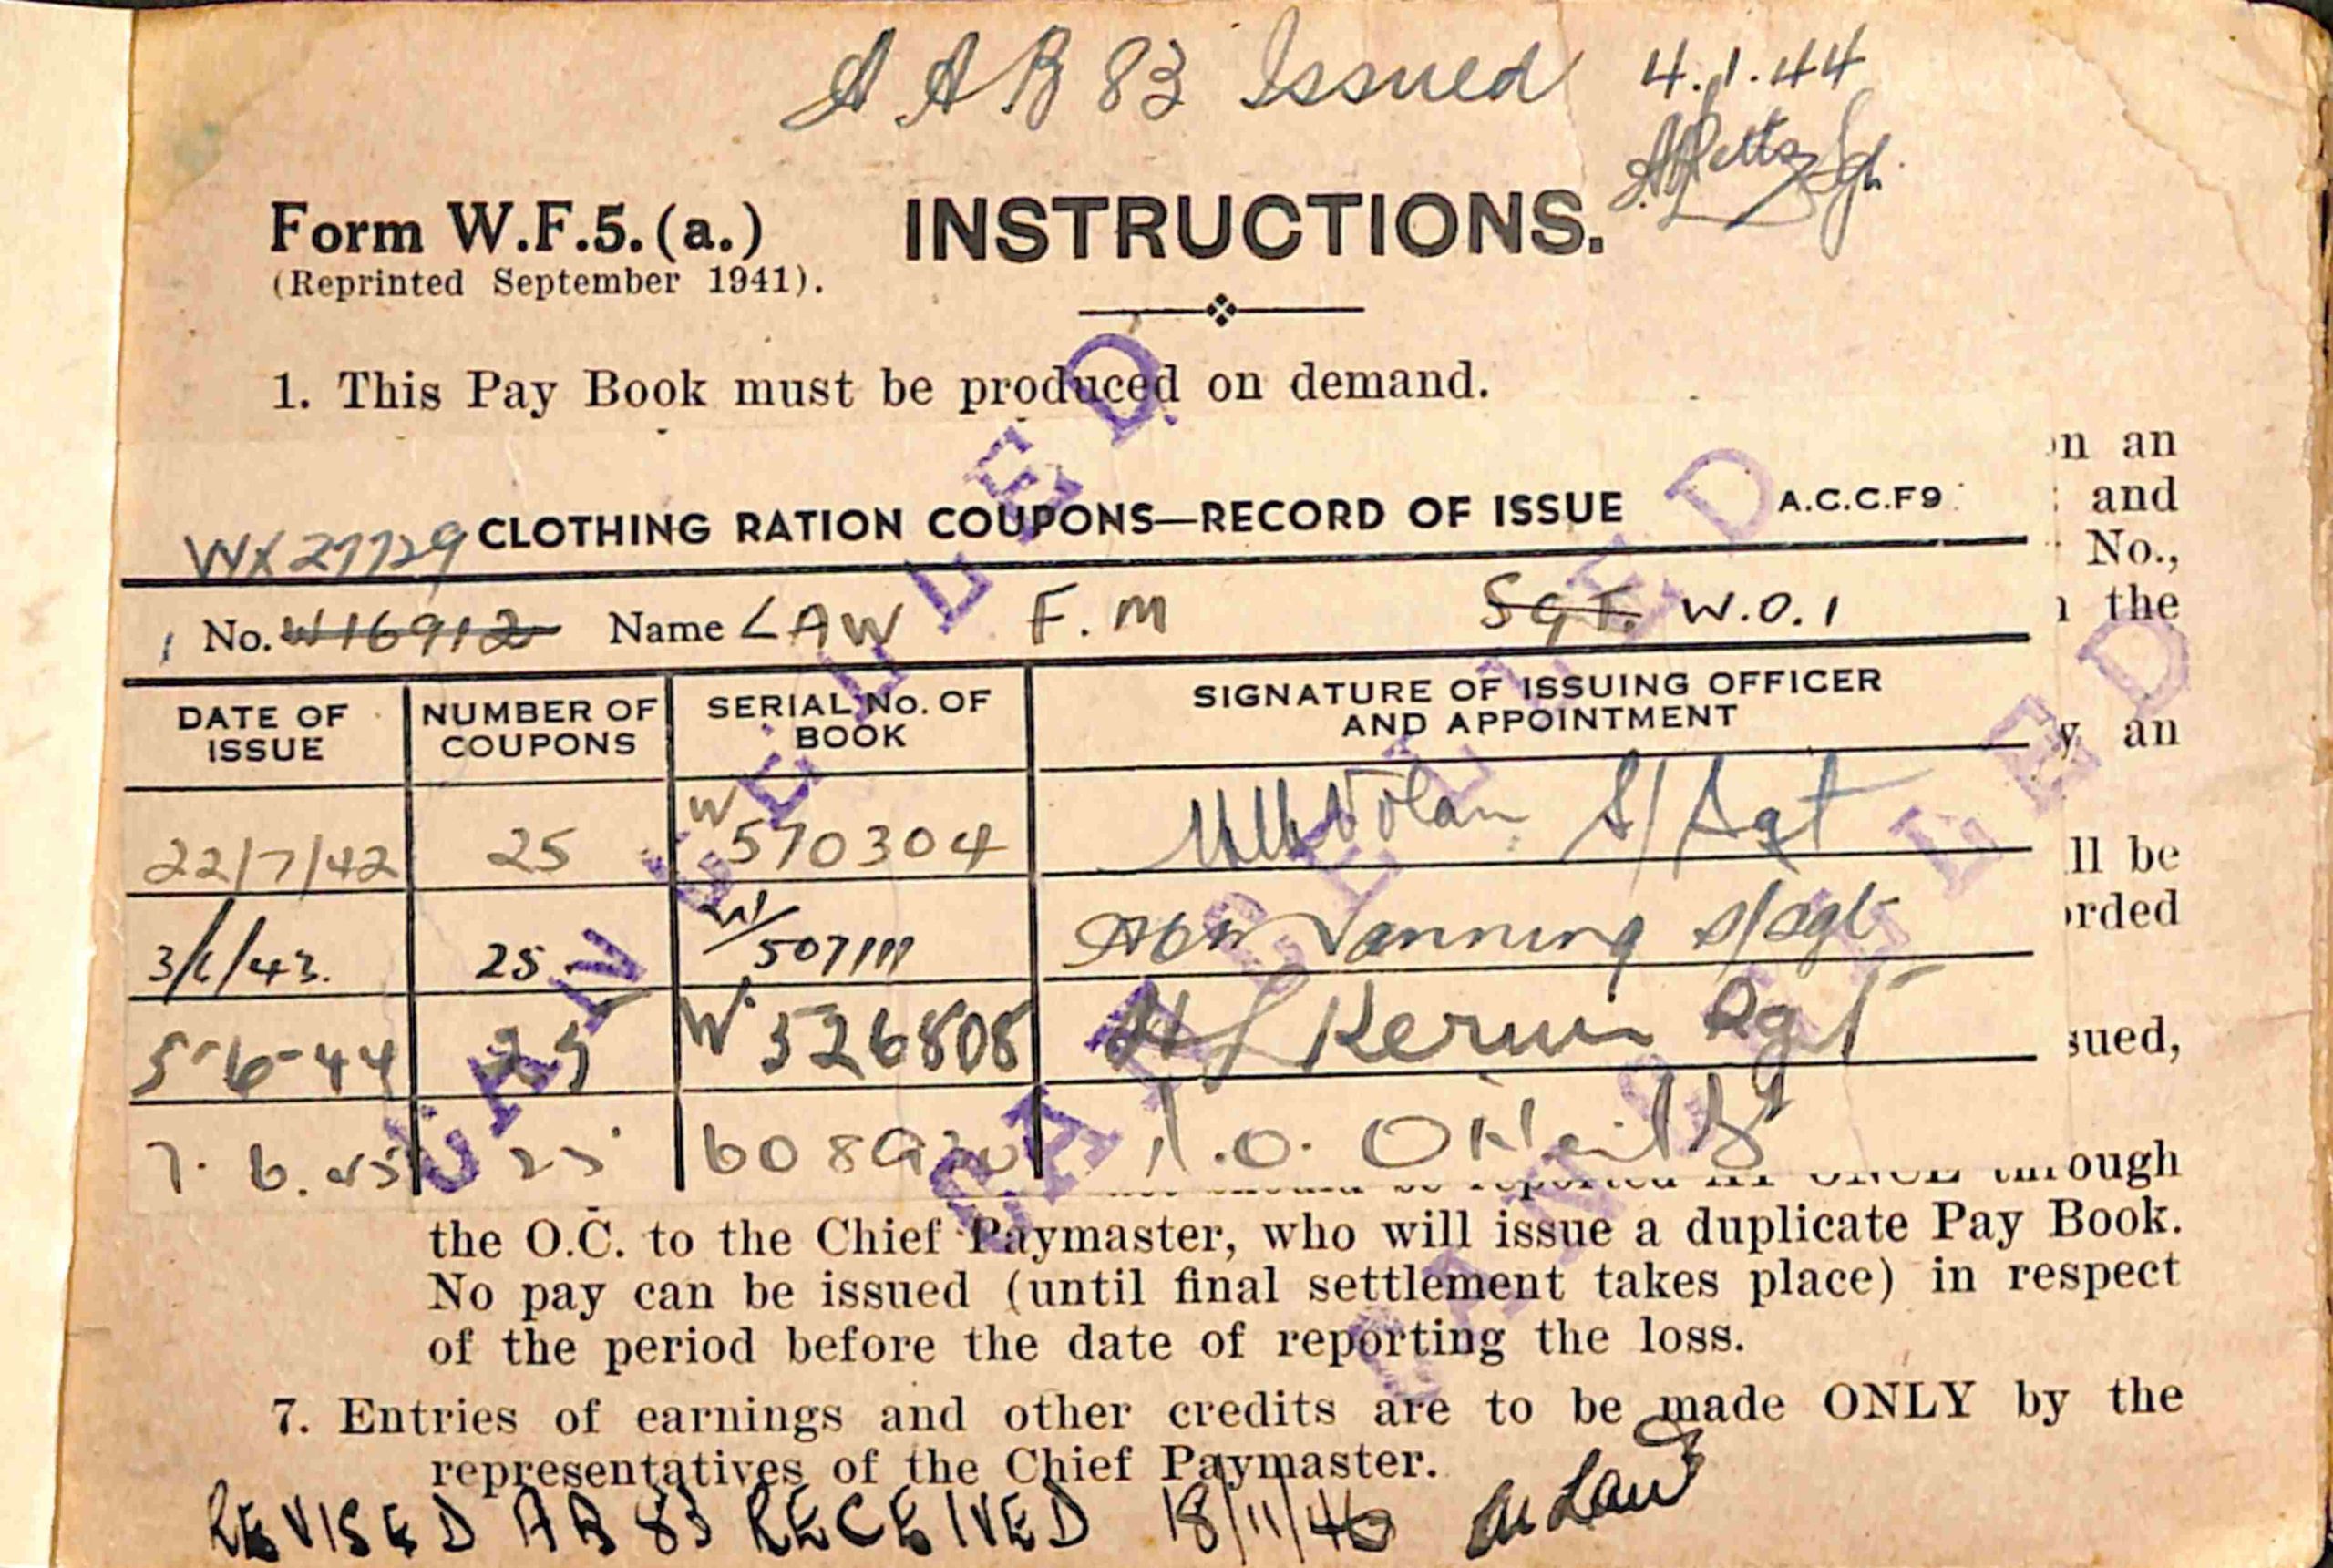 A AB 83 Issued 4.1.44
Form W.F.5.(a.) INSTRUCTIONS.
(Reprinted September 1941).
1. This Pay Book must be produced on demand.
n an
and
No.,
the
y an
ll be
rded
sued,
WX27729 CLOTHING RATION COUPONS—RECORD OF ISSUE A.C.C.F9
No. W16912 Name LAW F. M Sgt. W.O.1
DATE OF ISSUE NUMBER OF COUPONS SERIAL No. OF BOOK SIGNATURE OF ISSUING OFFICER AND APPOINTMENT
22/7/42 25 W 570304 Nolan S/Sgt
25 W/ Manning S/Sgt
5-6-44 25 W 526808 Kerwin Sgt
7.6.45 25 O'Neill
be reported AT ONCE through
the O.C. to the Chief Paymaster, who will issue a duplicate Pay Book.
No pay can be issued (until final settlement takes place) in respect
of the period before the date of reporting the loss.
7. Entries of earnings and other credits are to be made ONLY by the
representatives of the Chief Paymaster.
REVISED AB 83 RECEIVED 18/11/46 Law
CANCELLED
CANCELLED
CANCELLED